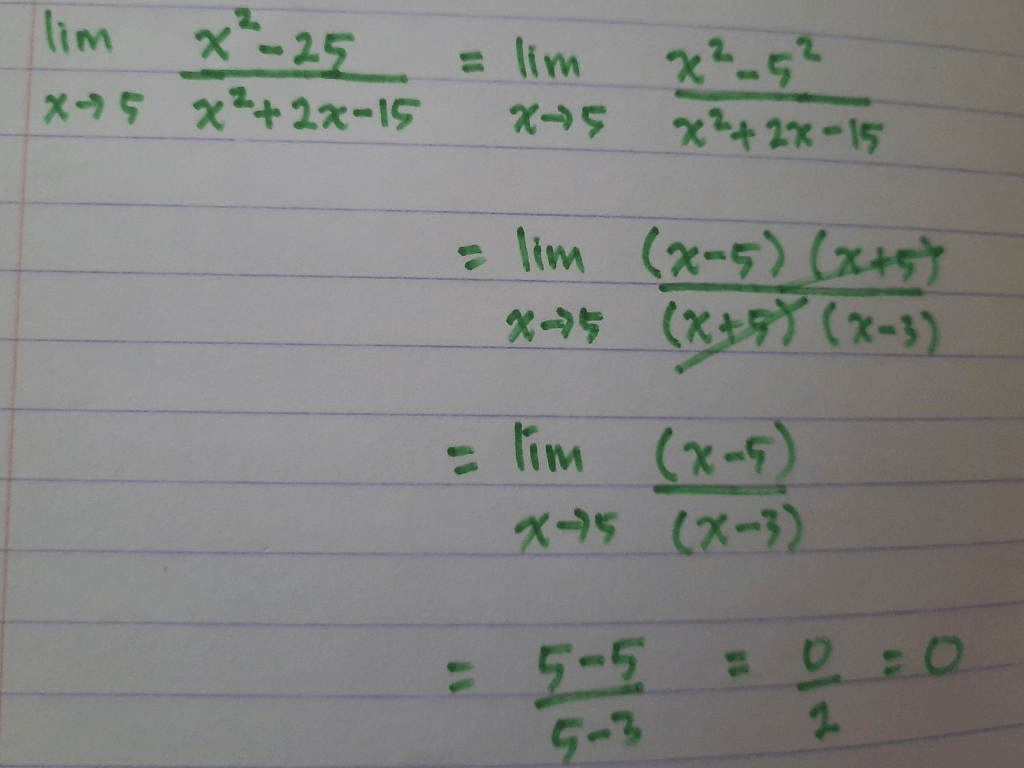 lim x→5 (x² - 25)/(x² + 2x - 15) = lim x→5 (x² - 5²)/(x² + 2x - 15)
= lim x→5 ((x-5) (x+5))/((x+5) (x-3))
= lim x→5 (x-5)/(x-3)
= (5-5)/(5-3) = 0/2 = 0